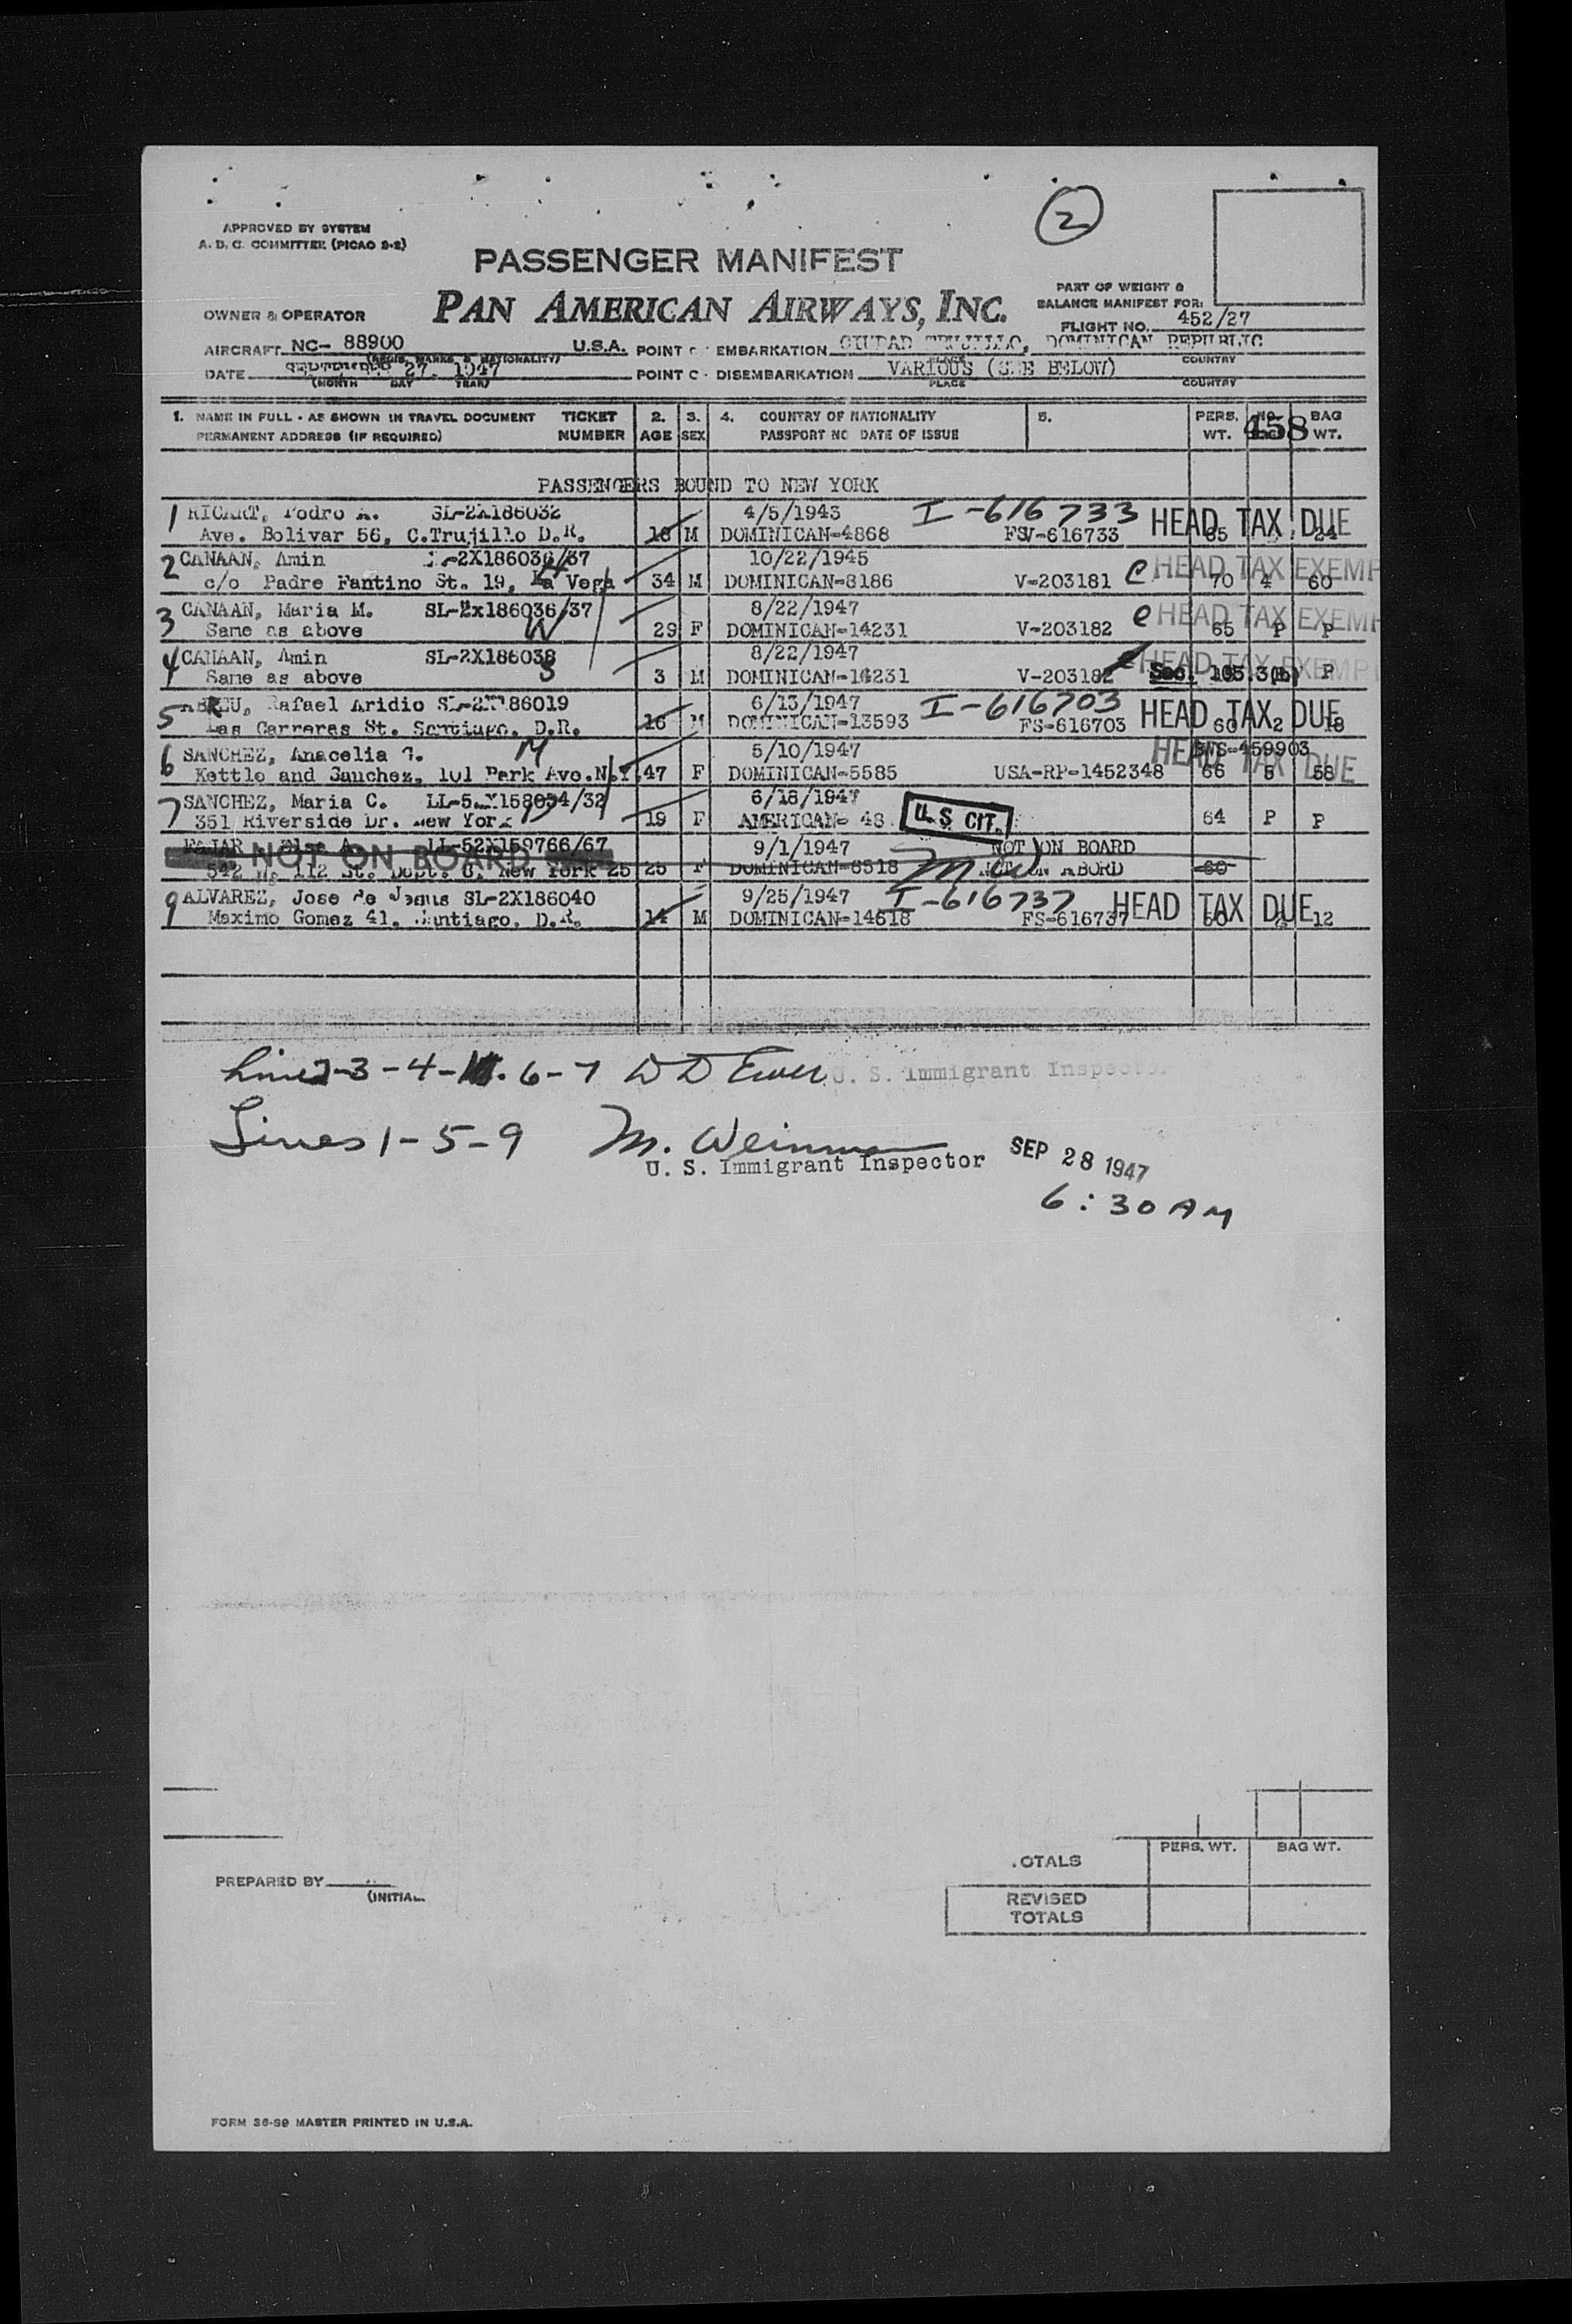 2
APPROVED BY SYSTEM
A. D. C. COMMITTEE (PICAO 9-2)
PASSENGER MANIFEST
PAN AMERICAN AIRWAYS, INC.
PART OF WEIGHT &
BALANCE MANIFEST FOR:
OWNER & OPERATOR
FLIGHT NO. 452/27
AIRCRAFT NC- 88900 U.S.A. POINT EMBARKATION CIUDAD TRUJILLO, DOMINICAN REPUBLIC
(REGIS. MARKS & NATIONALITY) PLACE COUNTRY
DATE SEPTEMBER 27, 1947 POINT DISEMBARKATION VARIOUS (SEE BELOW)
(MONTH DAY YEAR) PLACE COUNTRY
1. NAME IN FULL - AS SHOWN IN TRAVEL DOCUMENT TICKET 2. 3. 4. COUNTRY OF NATIONALITY 5. PERS. NO. BAG
PERMANENT ADDRESS (IF REQUIRED) NUMBER AGE SEX PASSPORT NO DATE OF ISSUE WT. 458 WT.
PASSENGERS BOUND TO NEW YORK
1 RICART, Pedro A. SL-2X186032 4/5/1943 I-616733 HEAD TAX DUE
Ave. Bolivar 56, C.Trujillo D.R. 18 M DOMINICAN-4868 FSV-616733 65 24
2 CANAAN, Amin -2X186036/37 10/22/1945 e HEAD TAX EXEMP
c/o Padre Fantino St. 19, La Vega 34 M DOMINICAN-8186 V-203181 70 4 60
3 CANAAN, Maria M. SL-2x186036/37 8/22/1947 e HEAD TAX EXEMP
Same as above W 29 F DOMINICAN-14231 V-203182 65 P P
4 CANAAN, Amin SL-2X186038 8/22/1947 e HEAD TAX EXEMP
Same as above S 3 M DOMINICAN-14231 V-203182 Sec. 105.3(b) P
5 ABREU, Rafael Aridio SL-2X186019 6/13/1947 I-616703 HEAD TAX DUE
Las Carreras St. Santiago, D.R. 16 M DOMINICAN-13593 FS-616703 60 2 18
6 SANCHEZ, Anacelia G. M 5/10/1947 HEAD TAX DUE -459903
Kettle and Sanchez, 101 Park Ave.N.Y. 47 F DOMINICAN-5585 USA-RP-1452348 66 8 58
7 SANCHEZ, Maria C. 6/18/1947 U. S. CIT.
351 Riverside Dr. New York D 19 F AMERICAN- 48 64 P P
FAJAR Elsa A. LL-52X159766/67 9/1/1947 NOT ON BOARD
NOT ON BOARD
542 W. 112 St. Dept. 8, New York 25 25 F DOMINICAN-6518 MW NOT ON ABORD 60
9 ALVAREZ, Jose de Jesus SL-2X186040 9/25/1947 I-616737 HEAD TAX DUE
Maximo Gomez 41, Santiago, D.R. 14 M DOMINICAN-14618 FS-616737 50 12
Lines 2-3-4- 6-7 U. S. Immigrant Inspector
Lines 1-5-9 M. Weinman
U. S. Immigrant Inspector SEP 28 1947
6:30 AM
PERS. WT. BAG WT.
OTALS
PREPARED BY
(INITIAL
REVISED
TOTALS
FORM 36-99 MASTER PRINTED IN U.S.A.